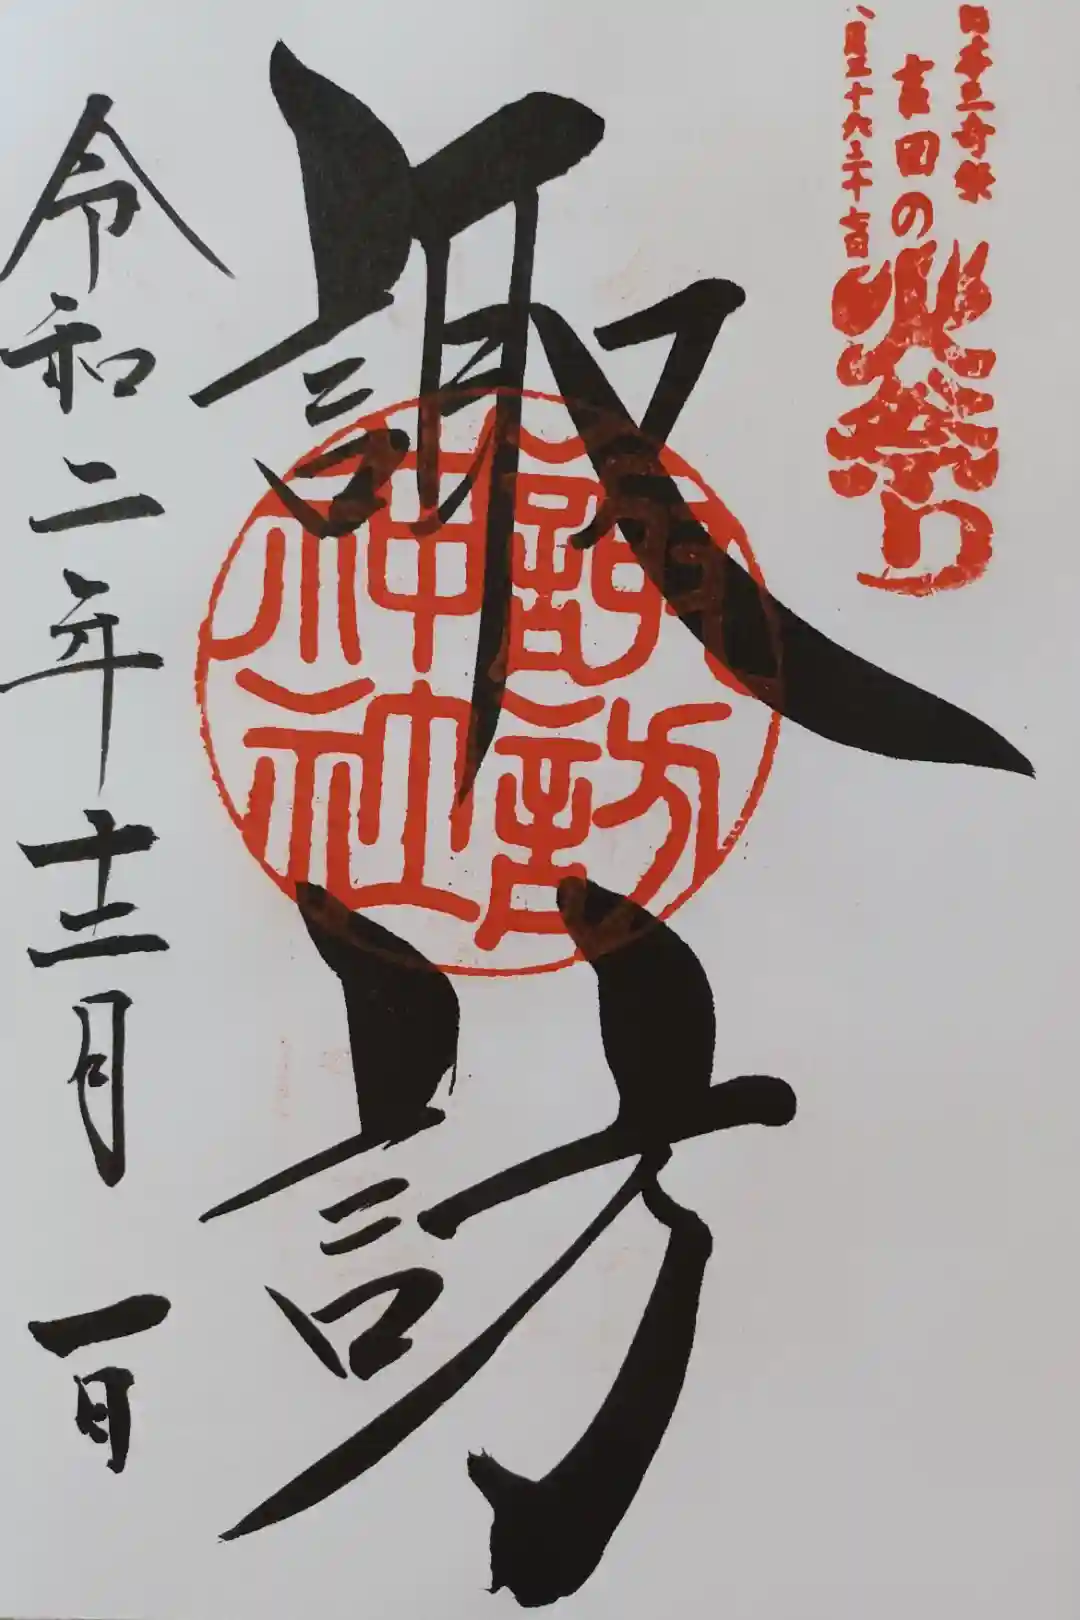 日本三奇祭
吉田の火祭り
八月二十六・二十七日
諏訪
諏訪
神社
令和二年十二月一日